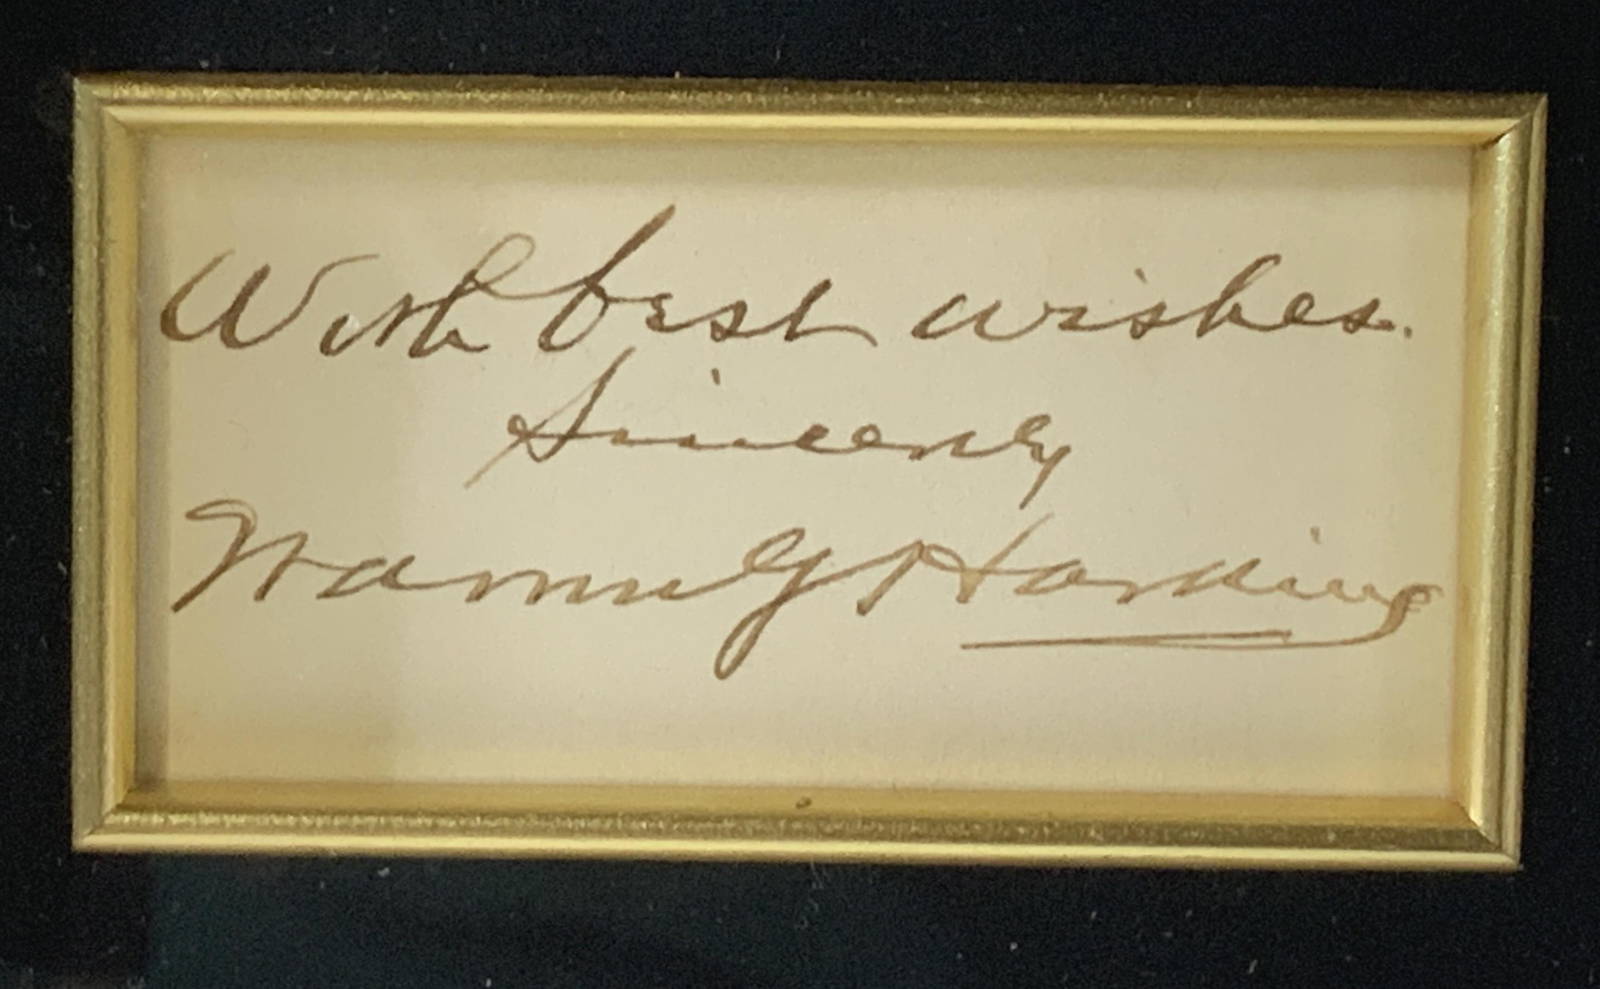 With best wishes.
Sincerely
Warren G Harding